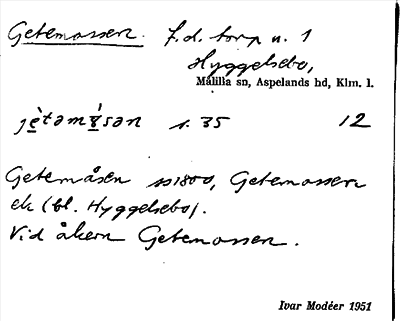 Getemossen. f.d. torp u. 1
Hyggelsebo,
Målilla sn, Aspelands hd, Klm. l.
s. 35 12
Getemåsen ss1800, Getemossen
ek (bl. Hyggelsebo).
Vid åkern Getemossen.
Ivar Modéer 1951